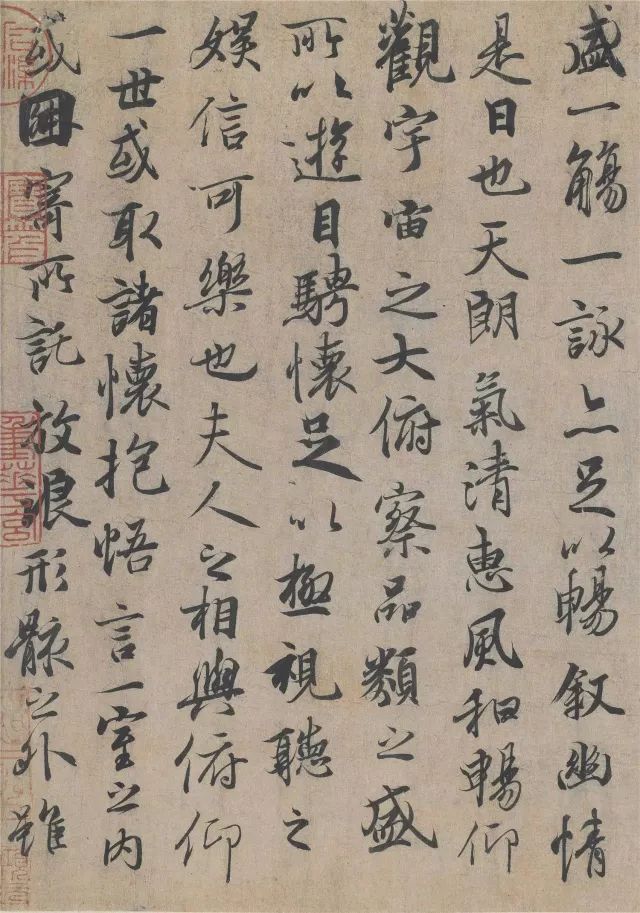 盛一觴一詠亦足以暢叙幽情
是日也天朗氣清惠風和暢仰
觀宇宙之大俯察品類之盛
所以遊目騁懷足以極視聽之
娱信可樂也夫人之相與俯仰
一世或取諸懷抱悟言一室之内
或因寄所託放浪形骸之外雖